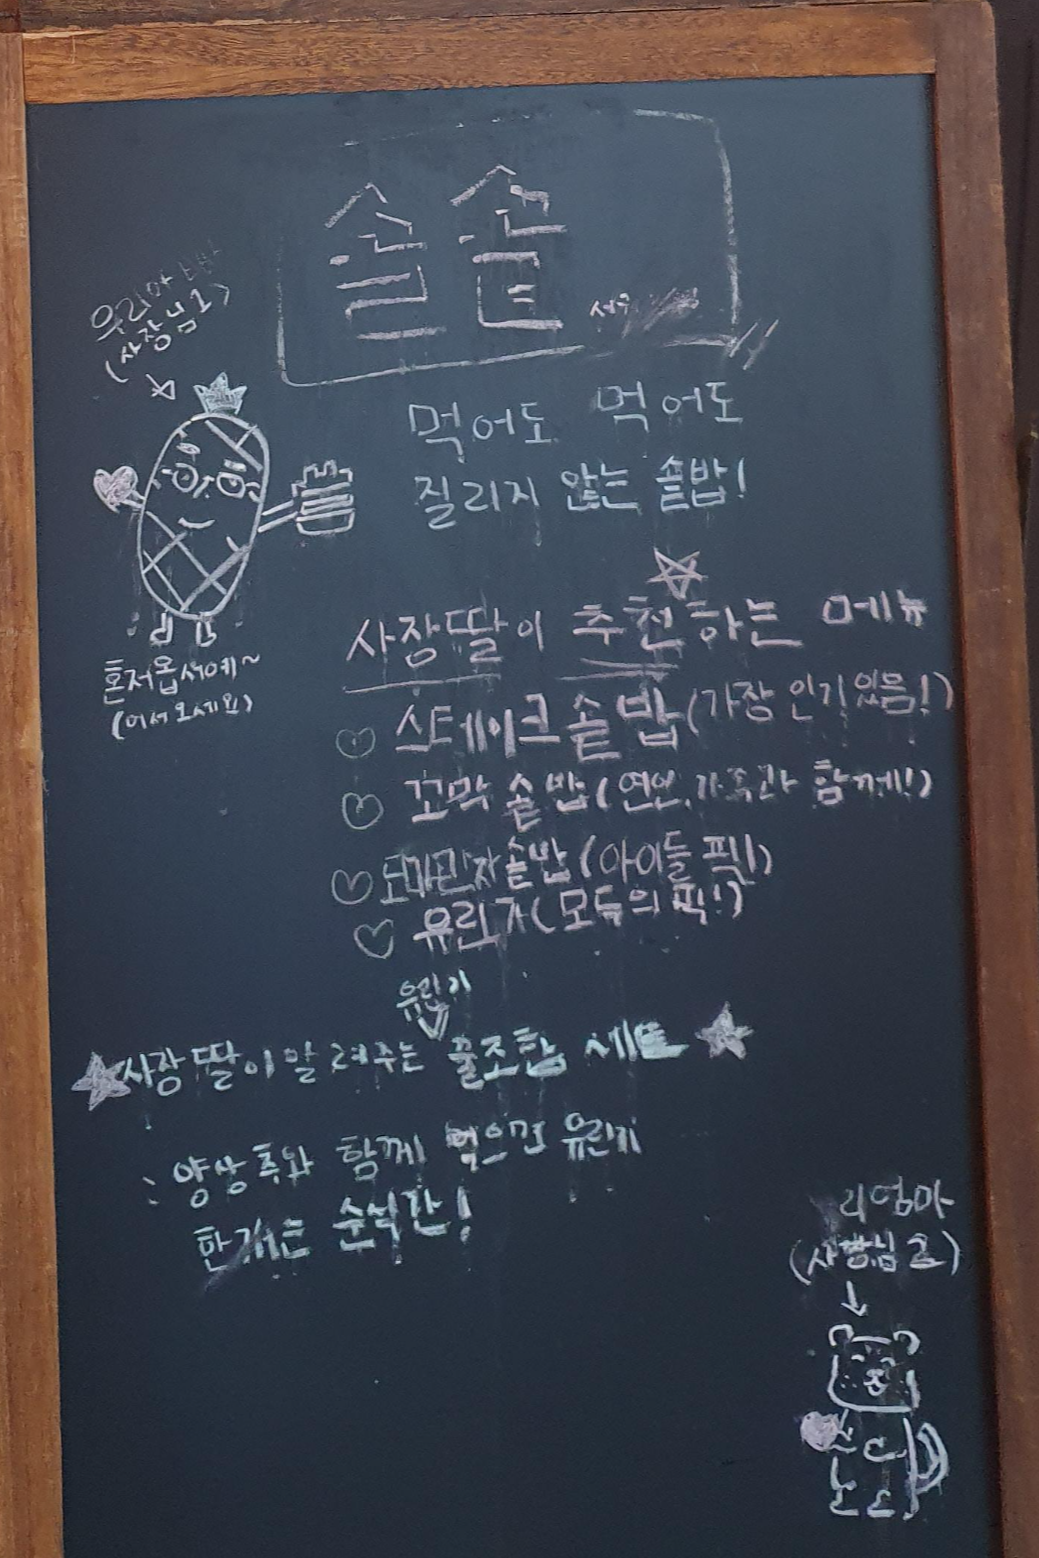 솔솥
우리아빠
(사장님1)
먹어도 먹어도
질리지 않는 솥밥!
혼저옵서예~
(어서오세요)
사장딸이 추천하는 메뉴
스테이크솥밥(가장 인기있음!)
꼬막 솥밥(연인, 가족과 함께!)
도미관자솥밥(아이들 픽!)
유린기(모두의 픽!)
유린기
사장딸이 알려주는 꿀조합 세트
: 양상추와 함께 먹으면 유린기
한개는 순식간!
리엄마
(사장님2)